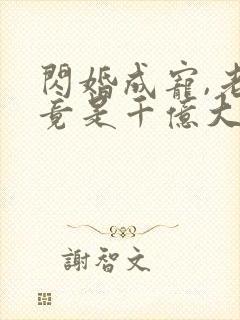 閃婚成寵,老
竟是千億大
謝智文